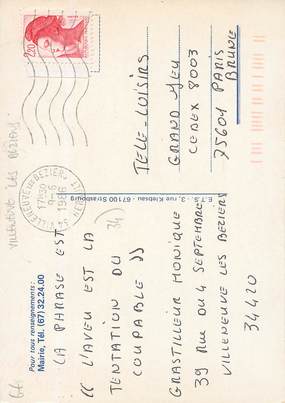 LA PHRASE EST
« L'AVEU EST LA
TENTATION DU
COUPABLE »
(34)
GRASTILLEUR MONIQUE
39 RUE DU 4 SEPTEMBRE
VILLENEUVE LES BEZIERS
34420
TELE-LOISIRS
GRAND JEU
CEDEX 8003
75604 PARIS
BRUNE
2,20
VILLENEUVE LES BEZIERS
17H30
9-6
1986
VILLENEUVE LES BEZIERS
Pour tous renseignements :
Mairie, Tél. (67) 32.24.00
3, rue Klebsau - 67100 Strasbourg